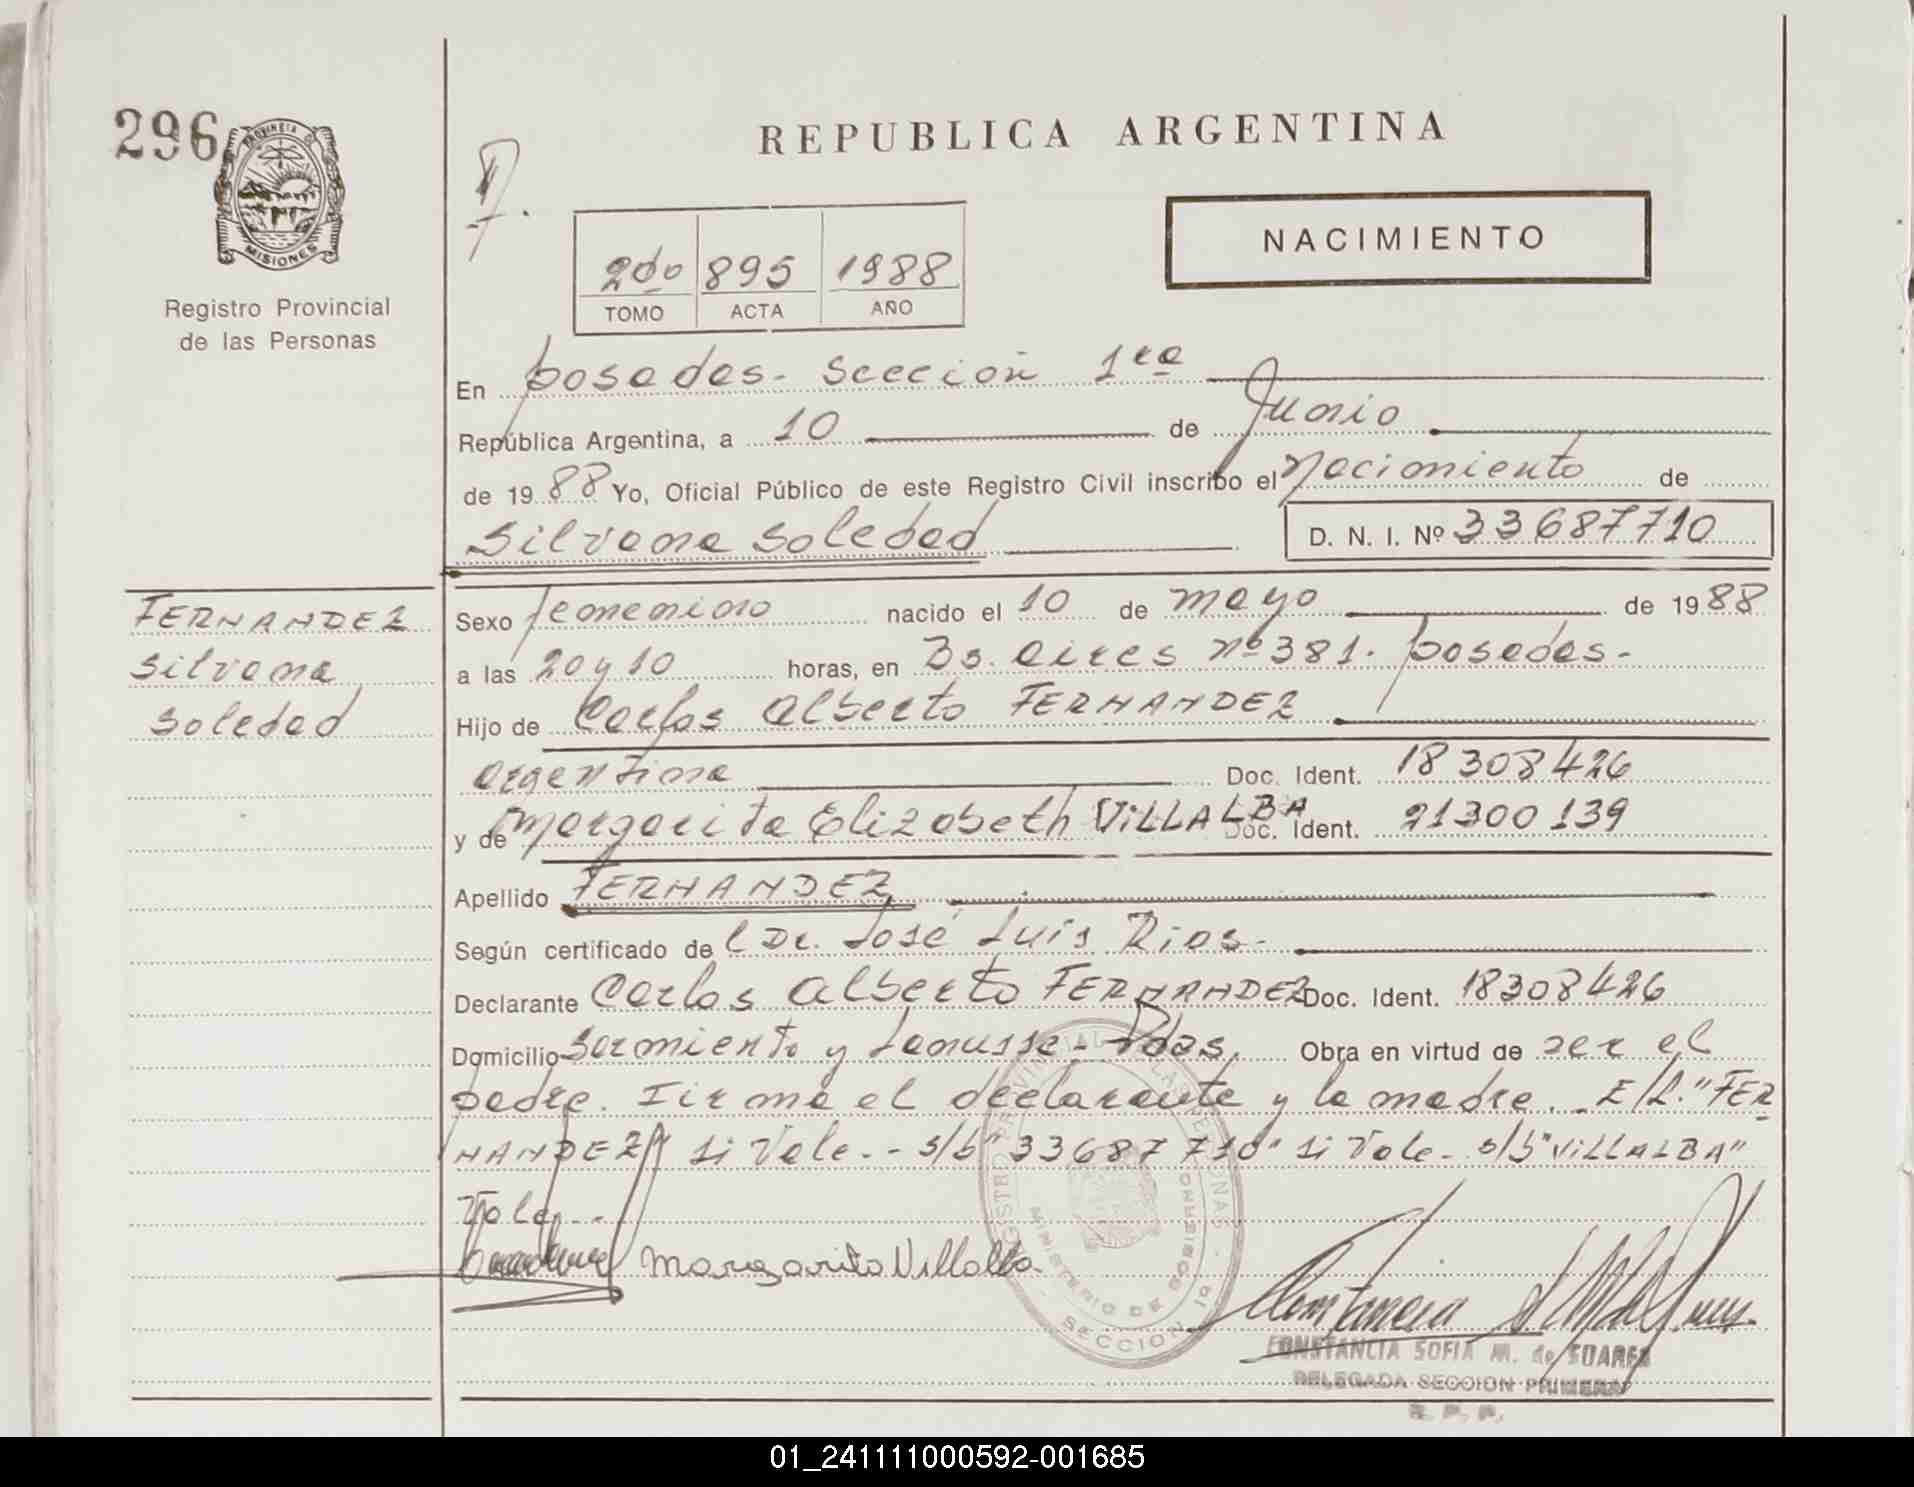 296
PROVINCIA D
MISIONES
Registro Provincial
de las Personas
REPUBLICA ARGENTINA
NACIMIENTO
2do 895 1988
TOMO ACTA AÑO
En posadas - sección 1ra
República Argentina, a 10 de Junio
de 1988 Yo, Oficial Público de este Registro Civil inscribo el Nacimiento de
Silvana Soledad D. N. I. Nº 33687710
FERNANDEZ
Silvana
Soledad
Sexo femenino nacido el 10 de mayo de 1988
a las 20 y 10 horas, en Bs. Aires nº 381. posadas.-
Hijo de Carlos Alberto FERNANDEZ
argentina Doc. Ident. 18308426
y de Margarita Elizabeth ViLLALBA Doc. Ident. 21300139
Apellido FERNANDEZ
Según certificado de l Dr. José Luis Rios.-
Declarante Carlos Alberto FERNANDEZ Doc. Ident. 18308426
Domicilio Sarmiento y Lanusse - Pdas. Obra en virtud de ser el
padre. Firma el declarante y la madre. E/L. "FER-
NANDEZ" si Vale.- - s/b "33687710" si Vale - s/b "ViLLALBA"
Vale. -
Margarita Villalba
MINISTERIO DE GOBIERNO
SECCION 1a
CONSTANCIA SOFIA M. de SUARES
DELEGADA SECCION PRIMERA
R. P. P.
01_241111000592-001685